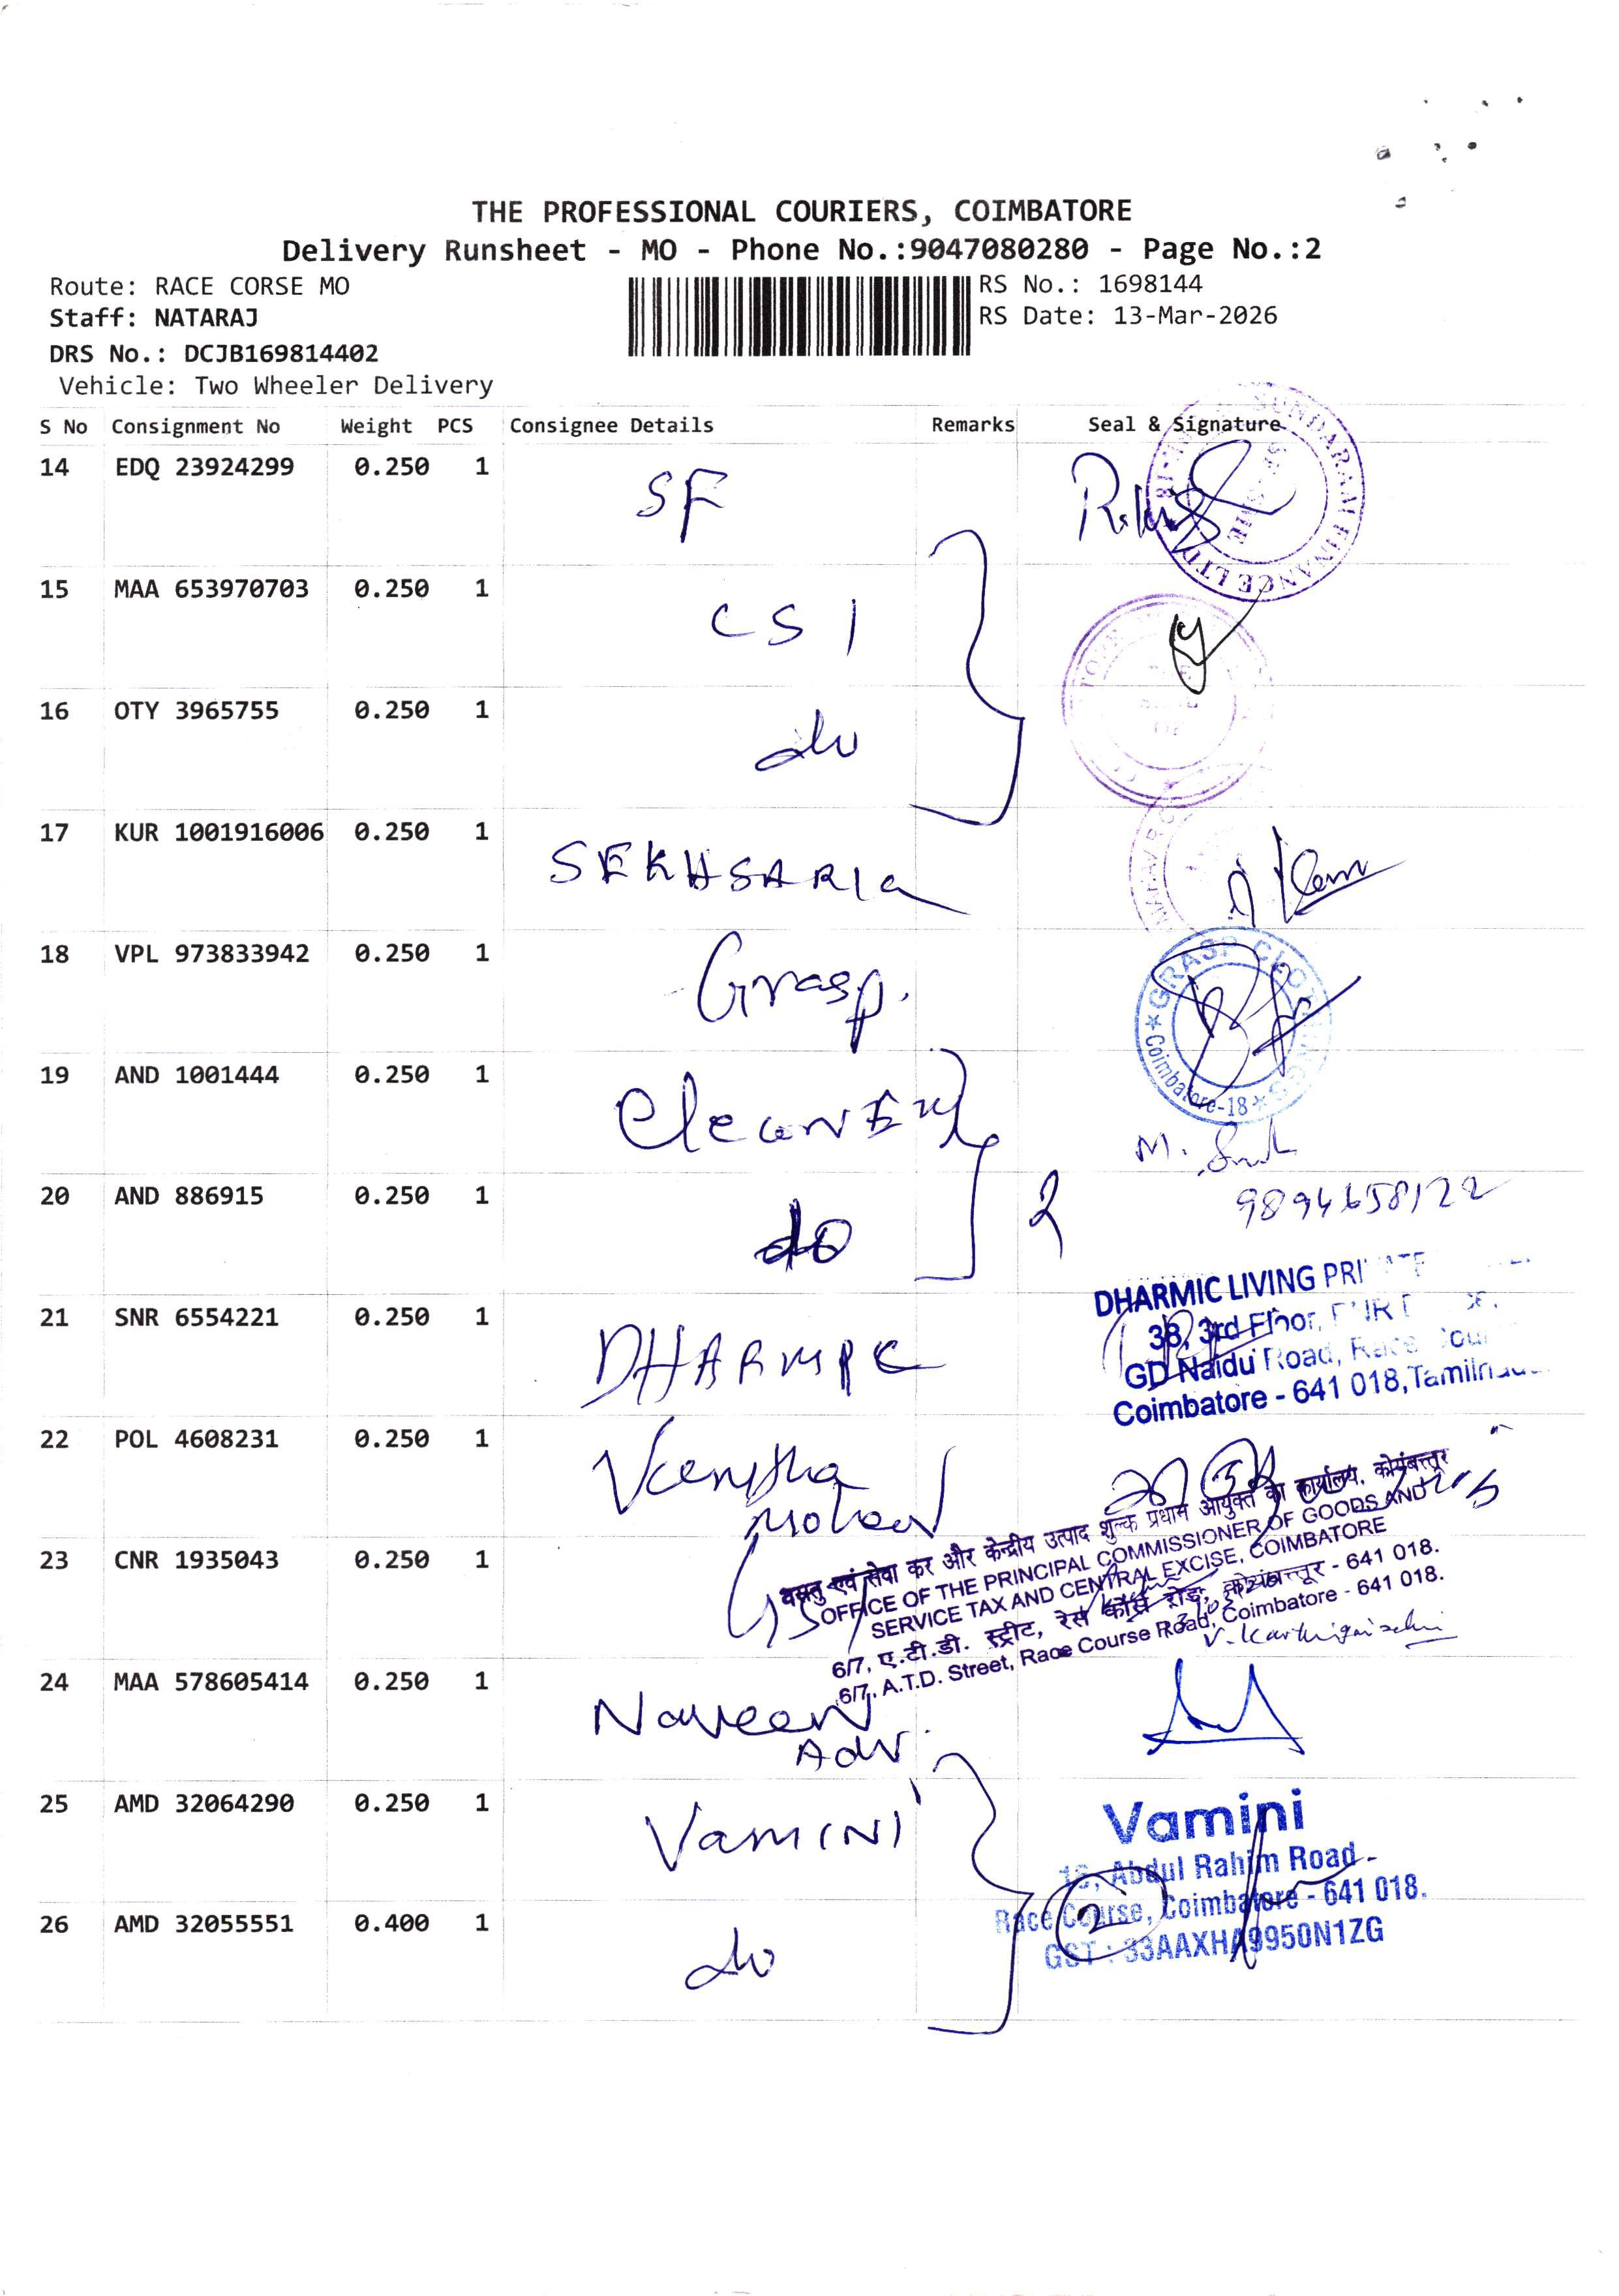 THE PROFESSIONAL COURIERS, COIMBATORE
Delivery Runsheet - MO - Phone No.:9047080280 - Page No.:2
Route: RACE CORSE MO
RS No.: 1698144
Staff: NATARAJ
RS Date: 13-Mar-2026
DRS No.: DCJB169814402
Vehicle: Two Wheeler Delivery
S No Consignment No Weight PCS Consignee Details Remarks Seal & Signature
14 EDQ 23924299 0.250 1 SF
SUNDARAM FINANCE LTD
15 MAA 653970703 0.250 1 CSI
16 OTY 3965755 0.250 1 do
17 KUR 1001916006 0.250 1 SEKHSARIA
18 VPL 973833942 0.250 1 Grasp.
GRASP CLOTHINGS
Coimbatore-18
19 AND 1001444 0.250 1
M.
20 AND 886915 0.250 1 do 2 9894658122
21 SNR 6554221 0.250 1
DHARMIC LIVING
38, 3rd Floor,
GD Naidu Road, Race
Coimbatore - 641 018, Tamilnadu
22 POL 4608231 0.250 1
Mohan
23 CNR 1935043 0.250 1 GST
वस्तु एवं सेवा कर और केन्द्रीय उत्पाद शुल्क प्रधान आयुक्त का कार्यालय, कोयंबत्तूर
OFFICE OF THE PRINCIPAL COMMISSIONER OF GOODS AND
SERVICE TAX AND CENTRAL EXCISE, COIMBATORE
6/7, ए.टी.डी. स्ट्रीट, रेस कोर्स रोड, कोयंबत्तूर - 641 018.
6/7, A.T.D. Street, Race Course Road, Coimbatore - 641 018.
24 MAA 578605414 0.250 1 Naveen
Adv.
25 AMD 32064290 0.250 1 Vamini
Vamini
16, Abdul Rahim Road
Race Course, Coimbatore - 641 018.
GST : 33AAXHA9950N1ZG
26 AMD 32055551 0.400 1 do 2